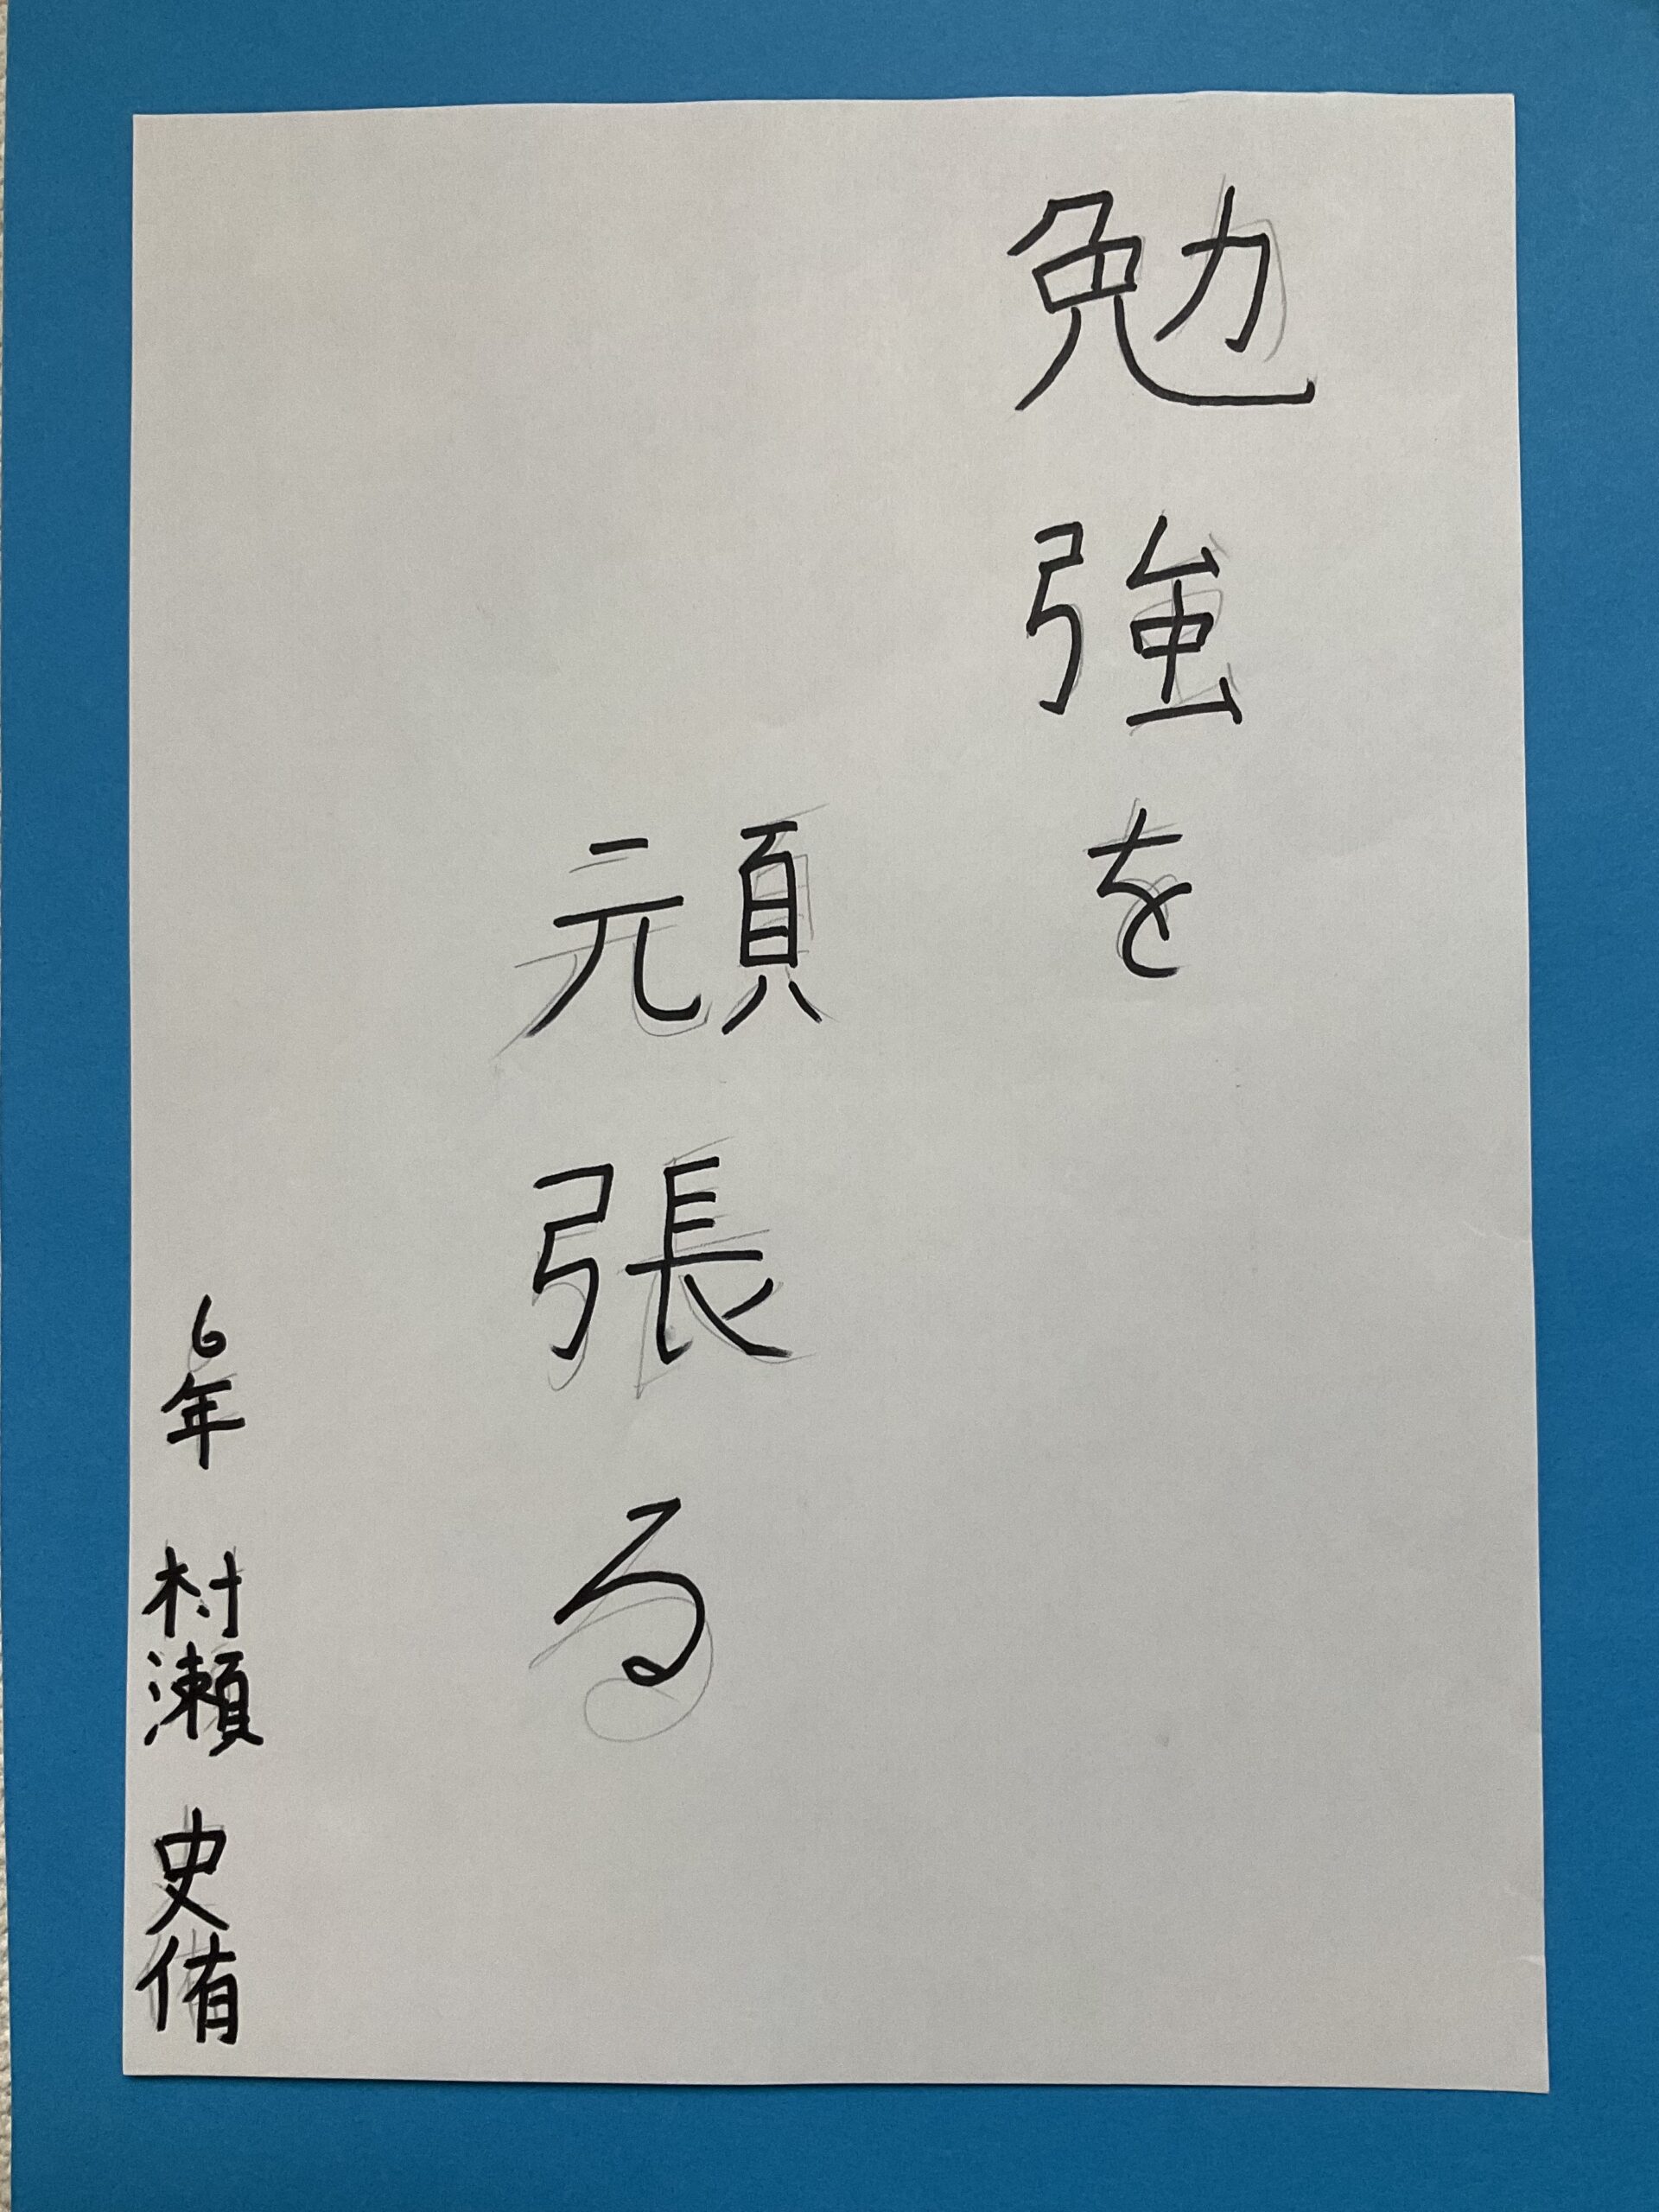 勉強を
頑張る
6年 村瀬 史侑